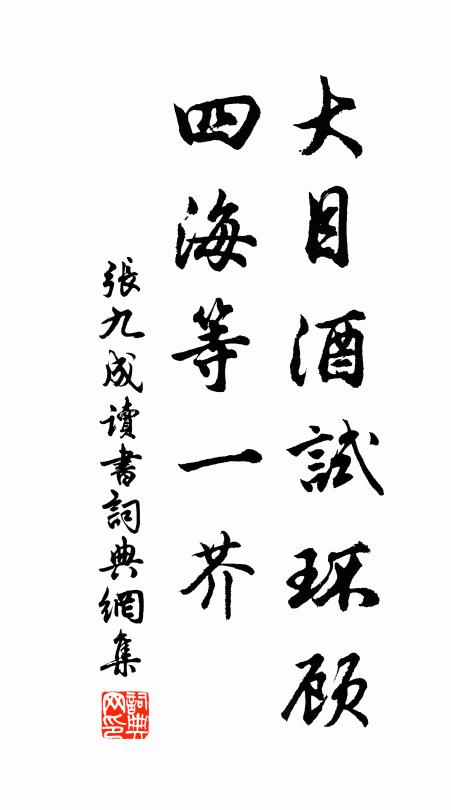 大目酒試环顾
四海等一芥
張九成讀書詞典網集
詞典
网印